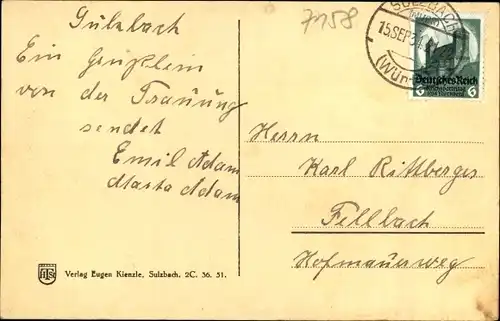 Sulzbach
7158
Ein Grüßlein
von der Trauung
sendet
Emil Adam
Marta Adam
SULZBACH
15.SEP.34
(Württ
Deutsches Reich
6 6
Herrn
Karl Rittberger
Fellbach
Hofmauerweg
Verlag Eugen Kienzle, Sulzbach. 2C. 36. 51.